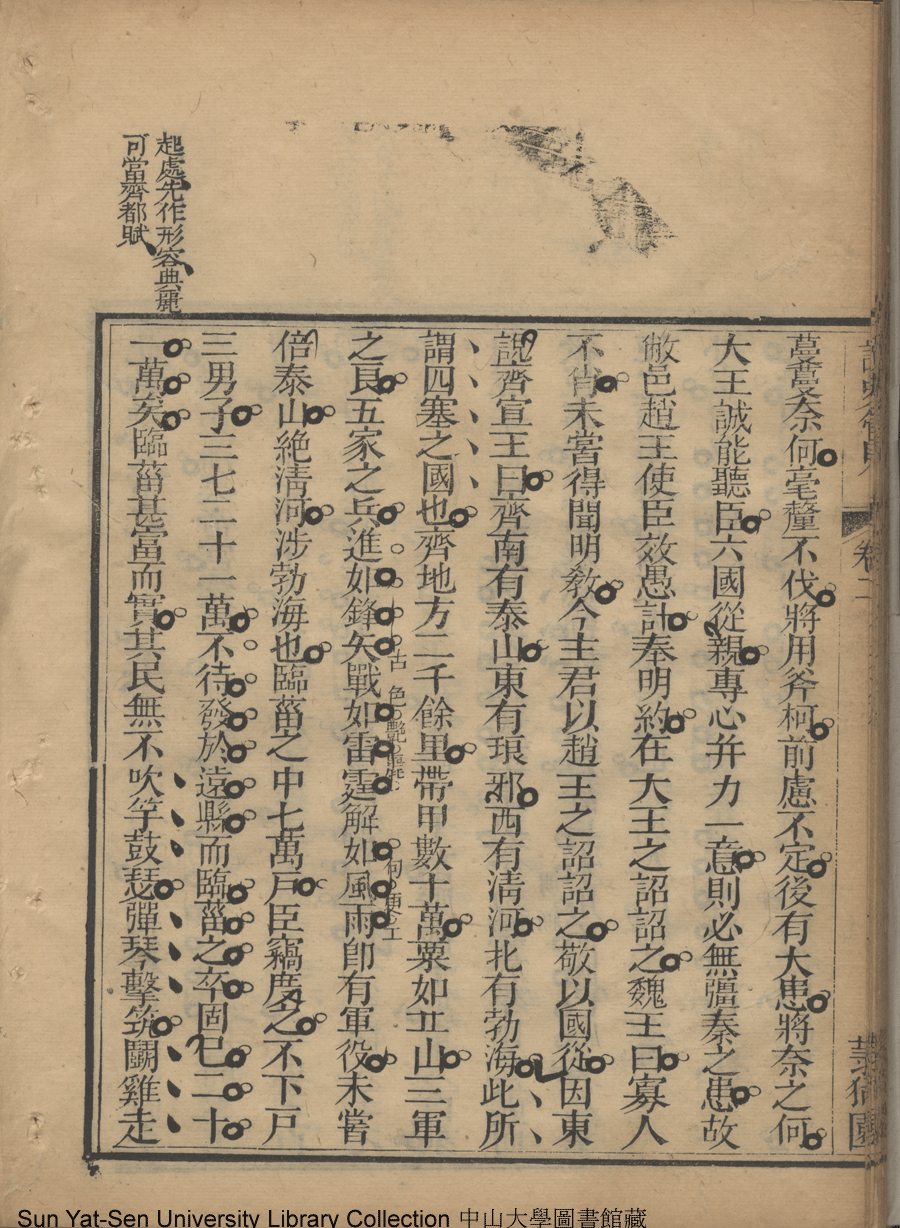 蔓蔓奈何毫釐不伐將用斧柯前慮不定後有大患將奈之何
大王誠能聽臣六國從親專心幷力一意則必無彊秦之患故
敝邑趙王使臣效愚計奉明約在大王之詔詔之魏王曰寡人
不肖未嘗得聞明敎今主君以趙王之詔詔之敬以國從因東
說齊宣王曰齊南有泰山東有琅邪西有淸河北有勃海此所
謂四塞之國也齊地方二千餘里帶甲數十萬粟如丘山三軍
之良五家之兵進如鋒矢戰如雷霆解如風雨卽有軍役未嘗
倍泰山絶淸河涉勃海也臨菑之中七萬戶臣竊度之不下戶
三男子三七二十一萬不待發於遠縣而臨菑之卒固已二十
一萬矣臨菑甚富而實其民無不吹竽鼓瑟彈琴擊筑鬬雞走
起處先作形容典麗
可當齊都賦
古色
句更工
卷二
Sun Yat-Sen University Library Collection 中山大學圖書館藏